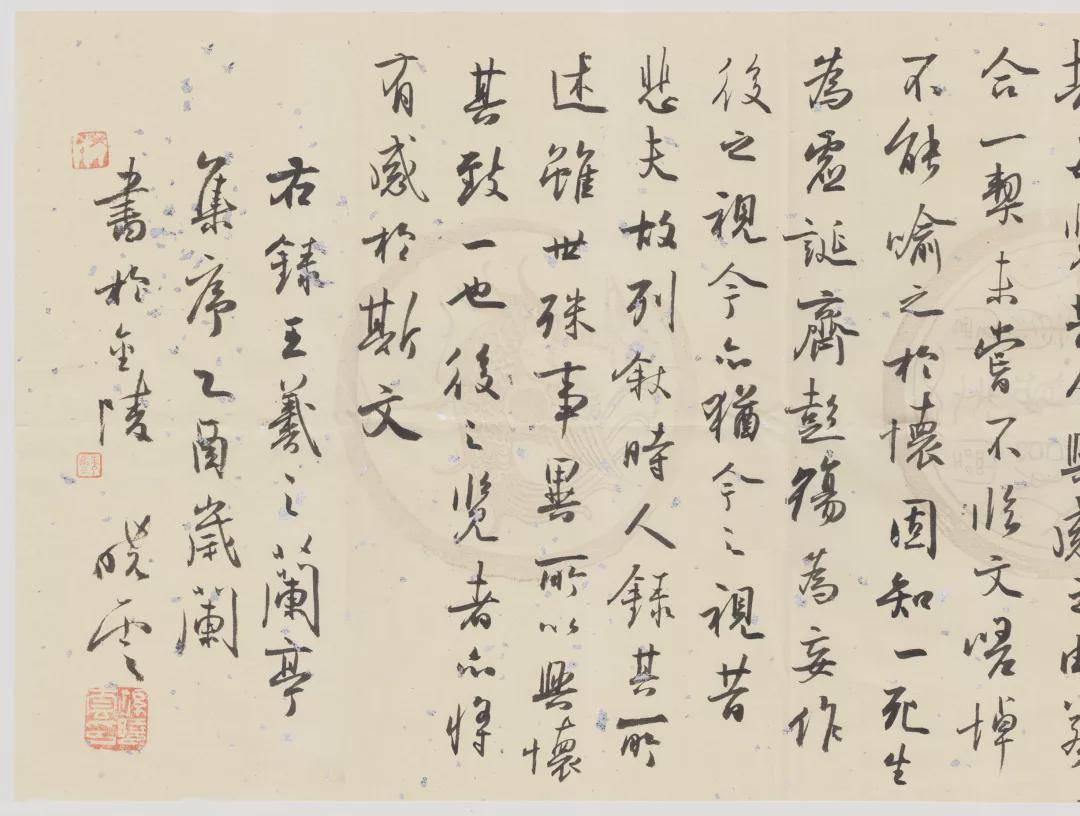 哉每覽昔人興感之由若
合一契未嘗不臨文嗟悼
不能喻之於懷固知一死生
為虛誕齊彭殤為妄作
後之視今亦猶今之視昔
悲夫故列敘時人錄其所
述雖世殊事異所以興懷
其致一也後之覽者亦將
有感於斯文
右錄王羲之蘭亭
集序乙酉歲蘭
書於金陵 曉雲